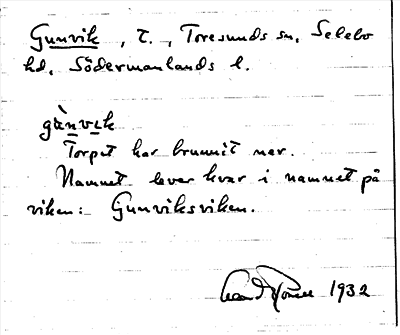 Gunvik, T., Toresunds sn, Selebo
hd, Södermanlands l.
gùnvik
Torpet har brunnit ner.
Namnet lever kvar i namnet på
viken: Gunviksviken.
1932